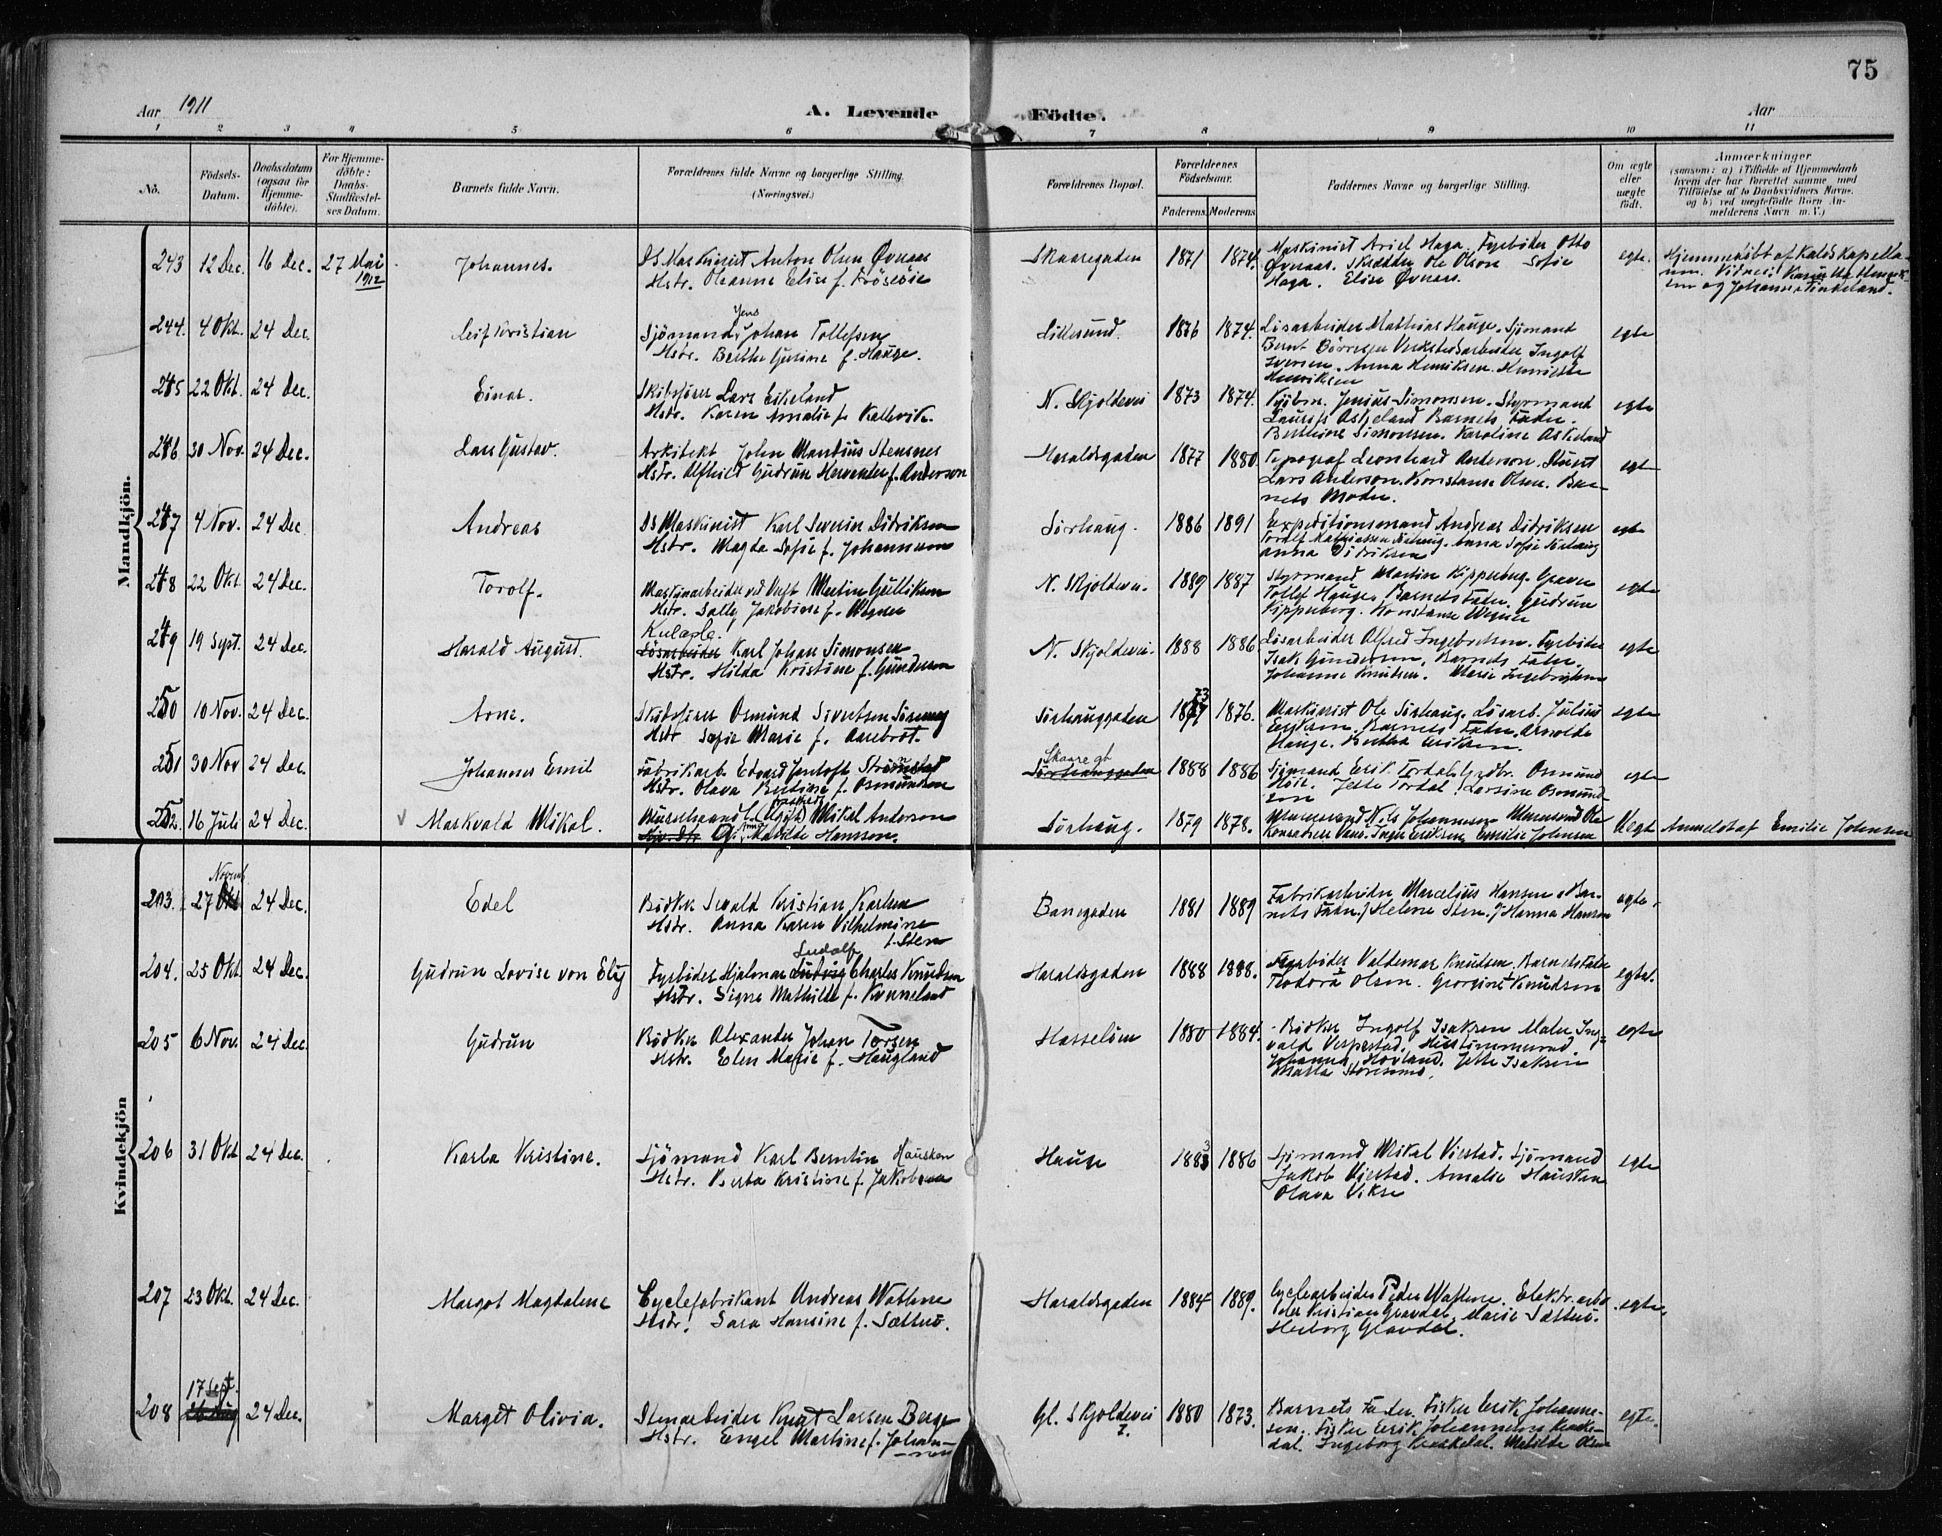 75
Aar 1911
A. Levende Födte.
Aar
1 2 3 4 5 6 7 8 9 10 11
No.
Födsels-Datum.
Daabsdatum (ogsaa for Hjemme-döbte).
For Hjemme-döbte: Daabs-Stadfæstel-ses Datum.
Barnets fulde Navn.
Forældrenes fulde Navne og borgerlige Stilling. (Næringsvei.)
Forældrenes Bopæl.
Forældrenes Födselsaar.
Faderens Moderens
Faddernes Navne og borgerlige Stilling.
Om ægte eller uægte födt.
Anmærkninger
(saasom: a) i Tilfælde af Hjemmedaab
hvem der har forrettet samme med
Tilföielse af to Daabsvidners Navne.
og b) ved uægtefödte Börn An-
melderens Navn m. V.)
Mandkjön.
243 12 Dec. 16 Dec. 27 Mai 1912 Johannes. DS Maskinist Anton Olsen Øvraas
Hstr. Oleanne Elise f.
Skaaregaden 1871 1874. Maskinist Ariel Haga. Fyrbøder Otto
Øvraas. Skrædder Ole Olson Sofie
Haga. Elise Øvraas.
egte. Hjemmedöbt af Kaldskapella-
nen. Vidner:
og Johanne
244. 4 Okt. 24 Dec. Leif Kristian Sjömand Jens Johan Tollefsen
Hstr. Berthe Gurine f. Hauge.
Lillesund. 1876 1874. Lösarbeider Mathias Hauge. Sjömand
Bernt Börresen Verkstedsarbeider Ingolf
Iversen. Anna Henriksen. Henriette
Henriksen
egte
245 22 Okt. 24 Dec. Einar. Skibsförer Lars Eikeland
Hstr. Karen Amalie f. Kallevik.
N. Skjoldevei 1873 1874. Kjöbm. Jenius Simonsen. Styrmand
Laurits Askeland Barnets Fader.
Berthine Simonsen. Karoline Askeland
egte
246 30 Nov. 24 Dec. Lars Gustav. Arkitekt John Mandius Stensnes
Hstr. Alfhild Gudrun f. Anderson
Haraldsgaden 1877 1880. Typograf Leonhard Anderson. Stuert
Lars Anderson. Konstanse Olsen. Bar-
nets Moder.
egte
247 4 Nov. 24 Dec Andreas DS Maskinist Karl Severin Didriksen
Hstr. Magda Sofie f. Johannesen
Sörhaug. 1886 1891 Expeditionsmand Andreas Didriksen
Anna Sofie Sörhaug
Anna Didriksen
egte
248 22 Okt. 24 Dec. Torolf. Maskinarbeider ved Verft Martin Gulliksen
Hstr. Sally Jakobine f. Wegner
N. Skjoldevei. 1889 1887 Styrmand Martin Kipperberg. Graver
Tollef Hauge. Barnets Fader. Gudrun
Kipperberg. Konstanse Wegner
egte
249 19 Sept. 24 Dec. Harald August. Lösarbeider Karl Johan Simonsen
Hstr. Hilda Kristine f. Gundersen
N. Skjoldevei. 1888 1886 Lösarbeider Alfred Ingebretsen. Fyrböder
Isak Gundersen. Barnets Fader.
Johanne Knutsen. Marie Ingebrigtsen
egte
250 10 Nov. 24 Dec. Arne. Skibsförer Osmund Sivertsen
Hstr Sofie Marie f. Aarebrot.
Sörhauggaden 1873 1876. Maskinist Ole Sörhaug. Lösarb. Julius
Eriksen. Barnets Fader. Arnolde
Hauge. Bertha Eriksen.
egte
251 30 Nov 24 Dec. Johannes Emil Fabrikarb. Edvard Jentoft Strömstad
Hstr. Olava Bertine f. Osmundsen
Skaare gt Sörhauggaden 1888 1886 Sjömand Erik Tordal.
Jette Tordal Larsine Osmund-
sen
egte
252. 16 Juli 24 Dec. Markvald Mikal. Mikal Anderson
Matilde Hansson.
Sörhaug. 1879 1878. Nils Johannesen
Inger Eriksen Emilie Johnsen
Uegte Anmeldt af Emilie Johnsen
Kvindekjön
203. 27 Novemb. Okt 24 Dec. Edel Bödker Sevald Kristian Karlsen
Hstr. Anna Karen Vilhelmine
f. Sten
Banegaden 1881 1889 Fabrikarbeider Marcelius Hansen. Bar-
nets Fader. Helene Sten. Hanna Hansen
egte.
204. 25 Okt. 24 Dec. Gudrun Lovise von Ely Fyrböder Hjalmar Ludolf Ludvig Charles Knudsen
Hstr. Signe Mathilde f. Kvinneland
Haraldsgaden 1888 1888. Fyrböder Valdemar Knudsen. Barnets Fader
Teodora Olsen. Georgine Knudsen
egte.
205 6 Nov. 24 Dec Gudrun Bödker Alexander Johan Torsen
Hstr. Elen Marie f. Haugland
Hasselöen 1880 1884. Bödker Ingolf Isaksen Maler Ing-
vald Vespestad.
Johanna Hovland. Jette Isaksen
Marta
egte
206 31 Okt 24 Dec. Karla Kristine. Sjömand Karl Berntin Hausken
Hstr. Berta Kristine f. Jakobsen
Hauge 1883 1886 Sjömand Mikal Vierstad. Sjömand
Jakob Vierstad. Amalie Hausken
Olava Vikse
egte
207 23 Okt. 24 Dec. Margot Magdalene Cyclefabrikant Andreas Wathne
Hstr. Sara Hansine f. Sættre.
Haraldsgaden 1884 1889. Cyclearbeider Peder Wathne. Elektr. arbei-
der Kristian Gravdal. Marie Sættre.
Herborg Gravdal.
egte.
208 17 Sept. 24 Dec. Marget Olivia. Stenarbeider Knut Larsen Berge
Hstr. Engel Martine f. Johan-
nesen
Gl. Skjoldevei 7. 1880 1873. Barnets Fader. Fisker Erik Johanne-
sen. Fisker Erik Johannesen Krakke-
dal. Ingeborg Krakkedal. Matilde Olsen
egte.